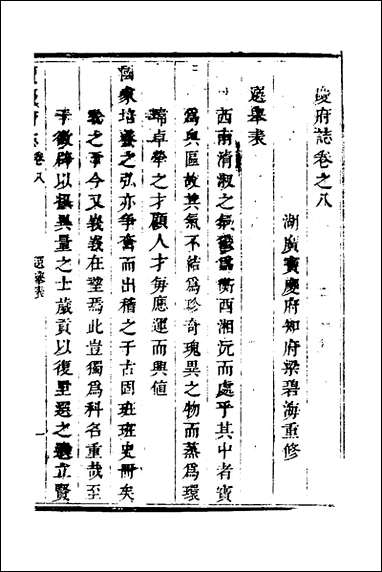 慶府誌卷之八
湖廣寶慶府知府梁碧海重修
選舉表
西南清淑之氣衡西湘沅而處乎其中者寶
為奧區故其氣不結為珍奇瑰異之物而蒸為環
琦卓犖之才顧人才每應運而興值
國家培養之弘亦爭奮而出稽之于古固班班史冊矣
之于今又峩峩在望焉此豈獨為科名重哉至
于徵辟以振異量之士歲貢以復里選之立賢
卷八
選舉表
一